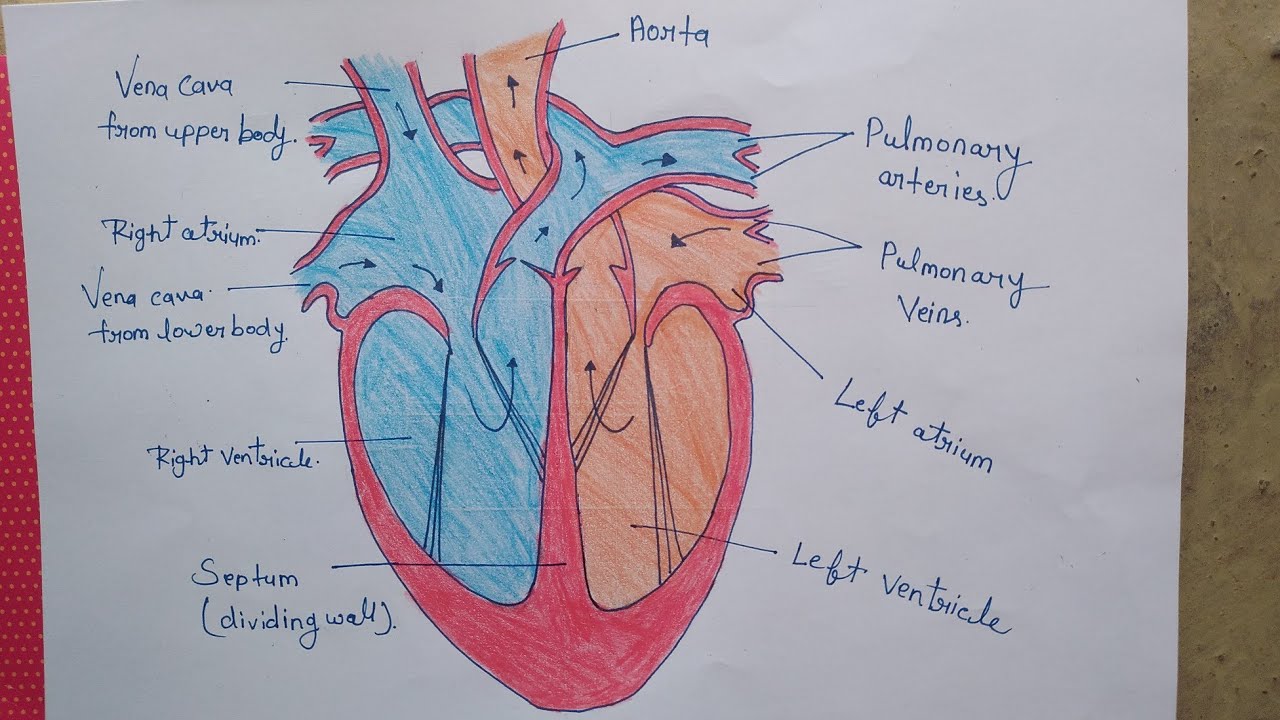 Aorta
Vena cava
from upper body.
Pulmonary
arteries.
Right atrium.
Pulmonary
Veins.
Vena cava.
from lower body.
Left atrium
Right ventricle.
Left ventricle
Septum
(dividing wall).